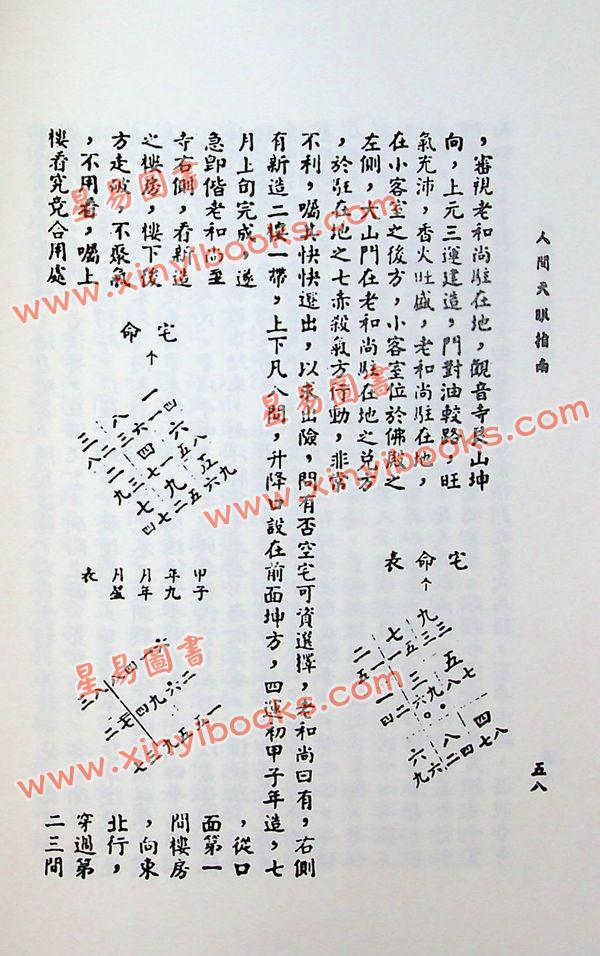 人間天眼指南
五八
，審視老和尚駐在地，觀音寺艮山坤
向，上元三運建造，門對油較路，旺
氣充沛，香火旺盛，老和尚駐在地，
在小客室之後方，小客室位於佛殿之
左側，大山門在老和尚駐在地之兌方
，於駐在地之七赤殺氣方行動，非常
宅命表
不利，囑其快快遷出，以求出險，問有否空宅可資選擇，老和尚曰有，右側
有新造二樓一帶，上下凡八間，升降口設在前面坤方，四運初甲子年造，七
月上旬完成，遂
急即偕老和尚至
寺右側，看新造
之樓房，樓下後
方走破，不聚氣
，不用看，囑上
樓看究竟合用處
宅命表
甲子
年九
月年
月盤
表
，從口
面第一
間樓房
，向東
北行，
穿過第
二三間
星易圖書
www.xinyibooks.com
星易圖書
www.xinyibooks.com
星易圖書
www.xinyibooks.com